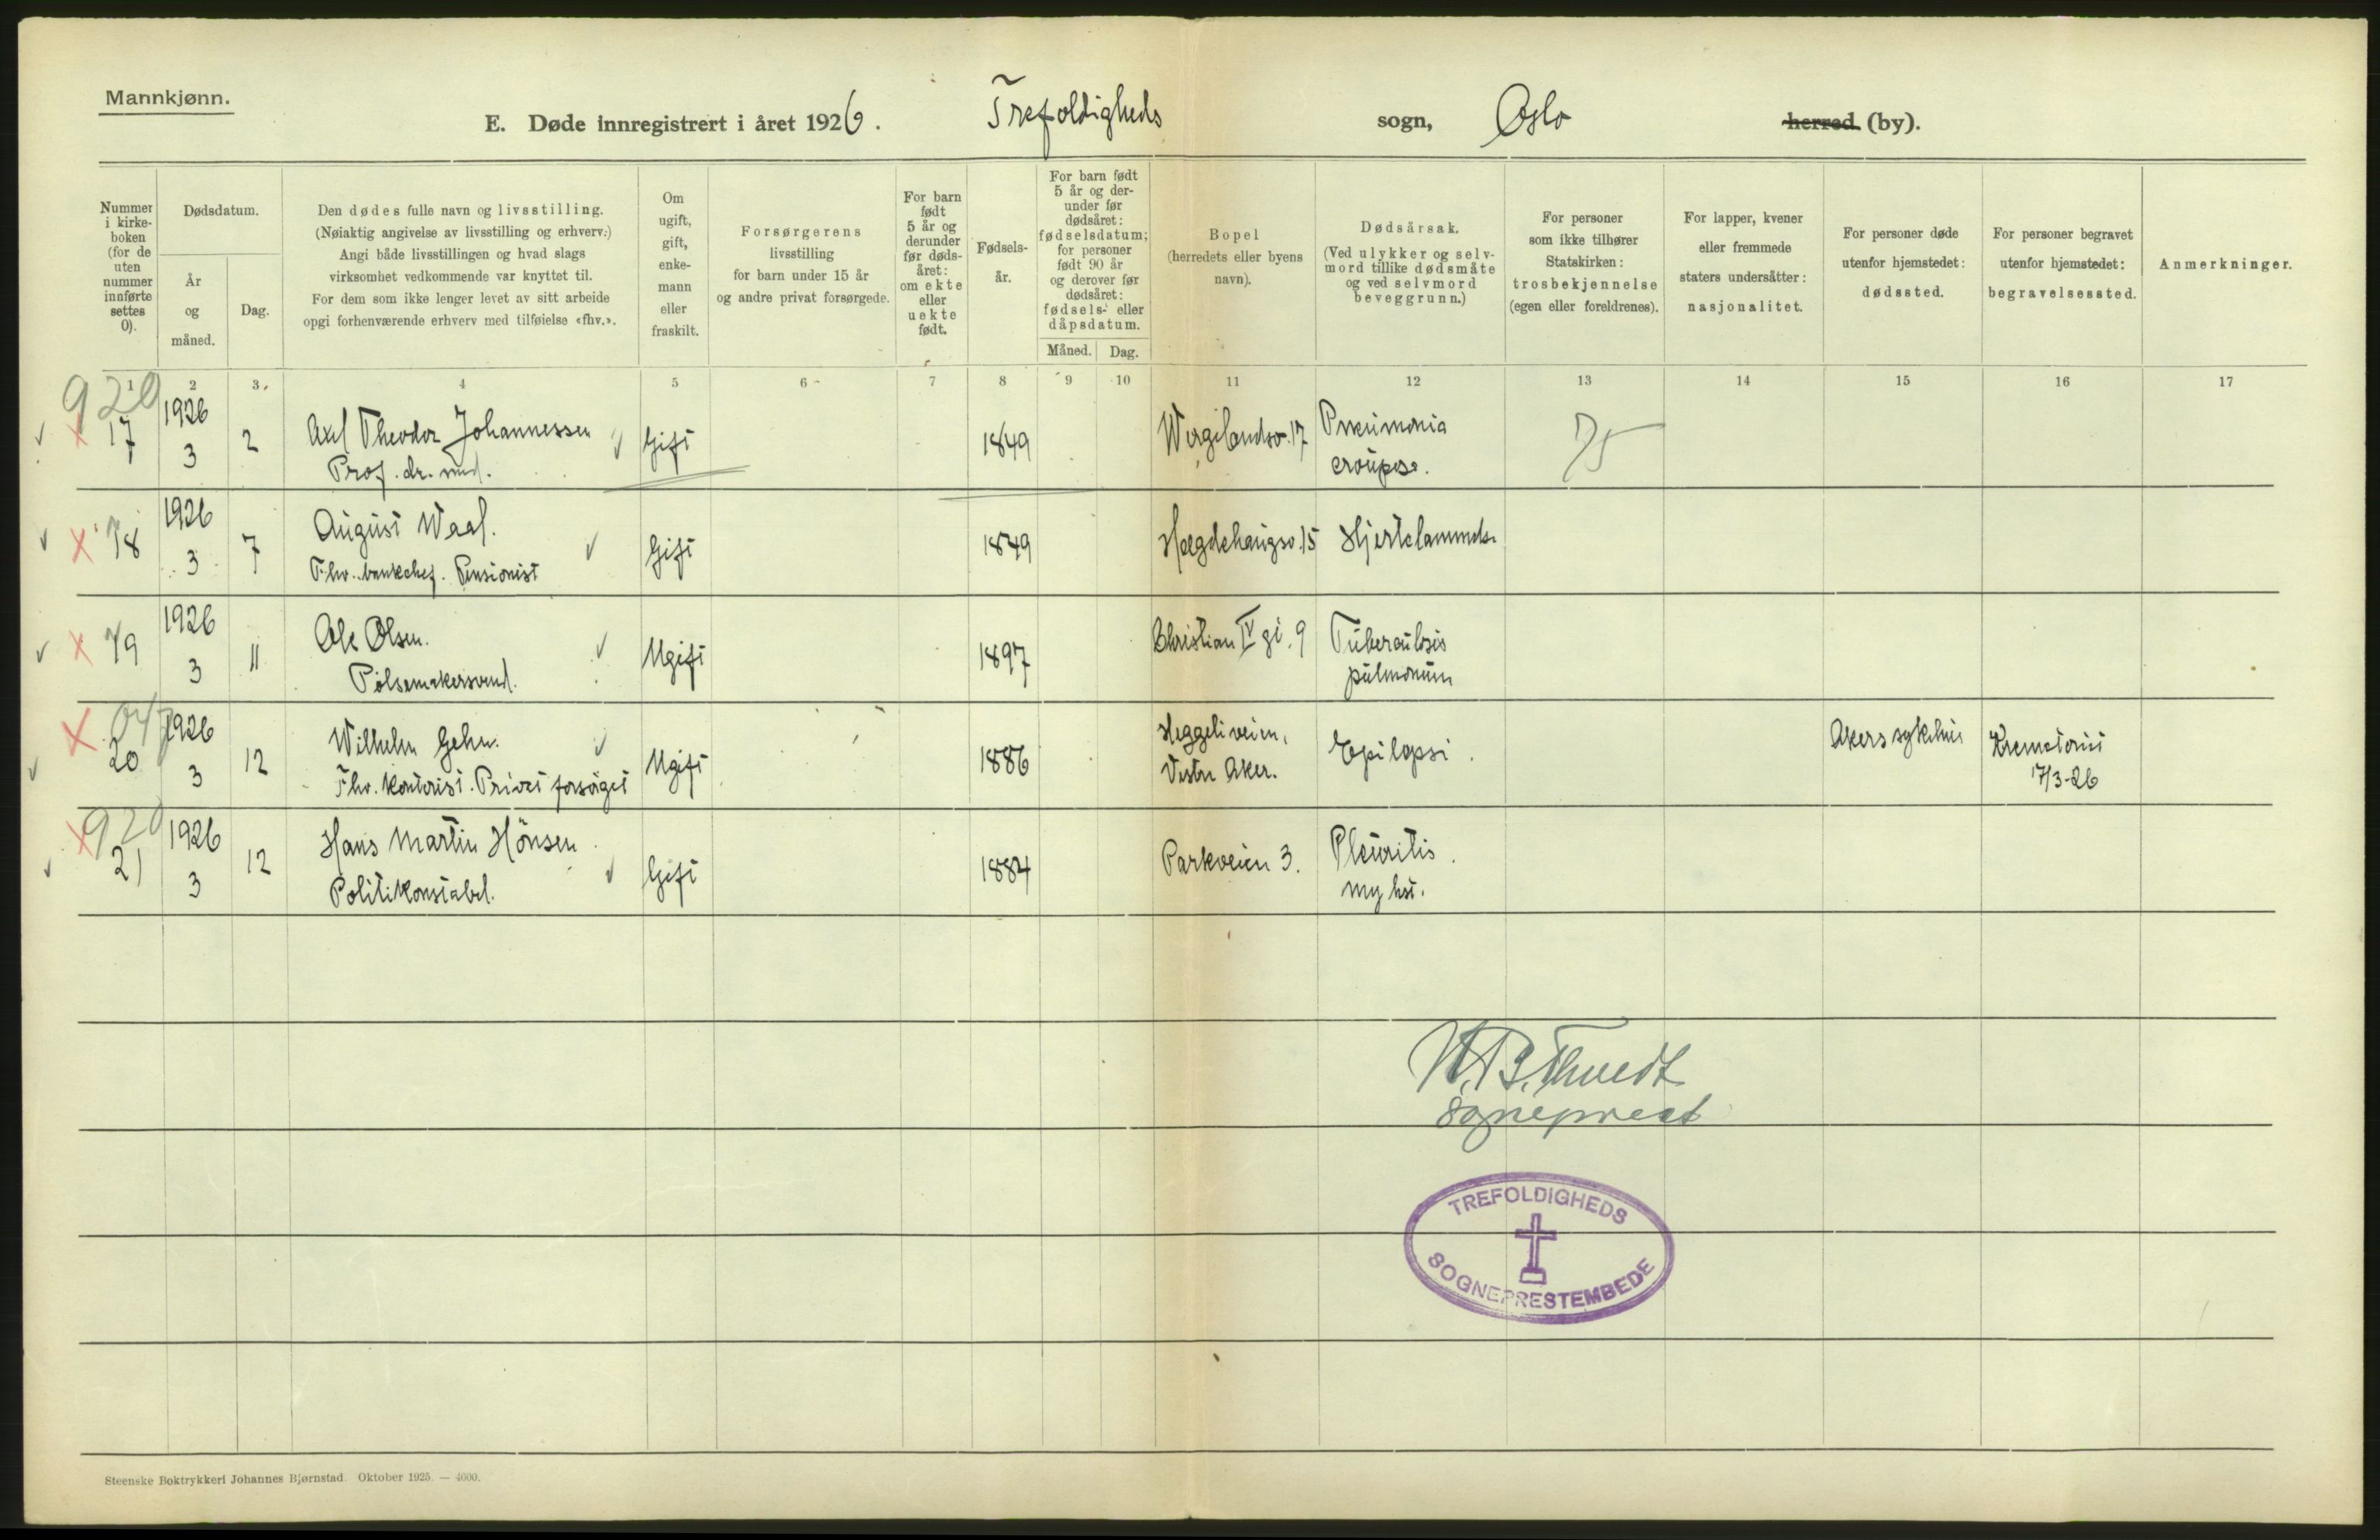 Mannkjønn.
E. Døde innregistrert i året 1926. Trefoldigheds sogn, Oslo herred (by).
Nummer i kirke-boken (for de uten nummer innførte settes 0).
Dødsdatum.
År og måned.
Dag.
Den dødes fulle navn og livsstilling.
(Nøiaktig angivelse av livsstilling og erhverv.)
Angi både livsstillingen og hvad slags
virksomhet vedkommende var knyttet til.
For dem som ikke lenger levet av sitt arbeide
opgi forhenværende erhverv med tilføielse «fhv.».
Om ugift, gift, enke-mann eller fraskilt.
Forsørgerens
livsstilling
for barn under 15 år
og andre privat forsørgede.
For barn født 5 år og derunder før døds-året: om ekte eller uekte født.
Fødsels-år.
For barn født 5 år og der-under før dødsåret: fødselsdatum; for personer født 90 år og derover før dødsåret: fødsels- eller dåpsdatum.
Måned. Dag.
Bopel
(herredets eller byens
navn).
Dødsårsak.
(Ved ulykker og selv-
mord tillike dødsmåte
og ved selvmord
beveggrunn.)
For personer
som ikke tilhører
Statskirken:
trosbekjennelse
(egen eller foreldrenes).
For lapper, kvener
eller fremmede
staters undersåtter:
nasjonalitet.
For personer døde
utenfor hjemstedet:
dødssted.
For personer begravet
utenfor hjemstedet:
begravelsessted.
Anmerkninger.
1 2 3 4 5 6 7 8 9 10 11 12 13 14 15 16 17
920
17 1926 3 2 Axel Theodor Johannessen Gift 1849 17 Pneumonia 75
Prof. dr. med. croupøs.
18 1926 3 7 August Waal. Gift 1849 Hægdehaugsv. 15 Hjertelammelse
Fhv. bankchef. Pensionist
19 1926 3 11 Ole Olsen. Ugift 1897 Christian IV gt. 9 Tuberculosis
Pølsemakersvend. pulmonum
20 1926 3 12 Wilhelm Gehn. Ugift 1886 Heggeliveien, Epilepsi. Akers sykehus Krematoriet
Fhv. kontorist. Privat forsørget Vestre Aker. 17/3-26
920
21 1926 3 12 Hans Martin Hönsen Gift 1884 Parkveien 3. Pleuritis.
Politikonstabel.
Sogneprest
TREFOLDIGHEDS
SOGNEPRESTEMBEDE
Steenske Boktrykkeri Johannes Bjørnstad. Oktober 1925. — 4000.